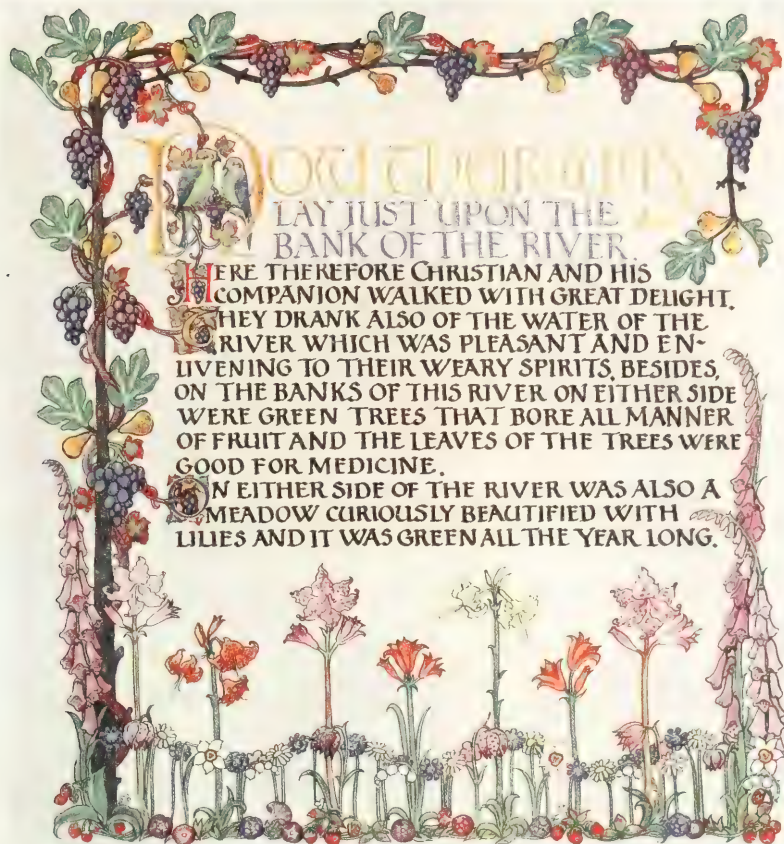 NOW THEIR WAY
LAY JUST UPON THE
BANK OF THE RIVER.
HERE THEREFORE CHRISTIAN AND HIS
COMPANION WALKED WITH GREAT DELIGHT.
THEY DRANK ALSO OF THE WATER OF THE
RIVER WHICH WAS PLEASANT AND EN-
LIVENING TO THEIR WEARY SPIRITS. BESIDES,
ON THE BANKS OF THIS RIVER ON EITHER SIDE
WERE GREEN TREES THAT BORE ALL MANNER
OF FRUIT AND THE LEAVES OF THE TREES WERE
GOOD FOR MEDICINE.
ON EITHER SIDE OF THE RIVER WAS ALSO A
MEADOW CURIOUSLY BEAUTIFIED WITH
LILIES AND IT WAS GREEN ALL THE YEAR LONG.